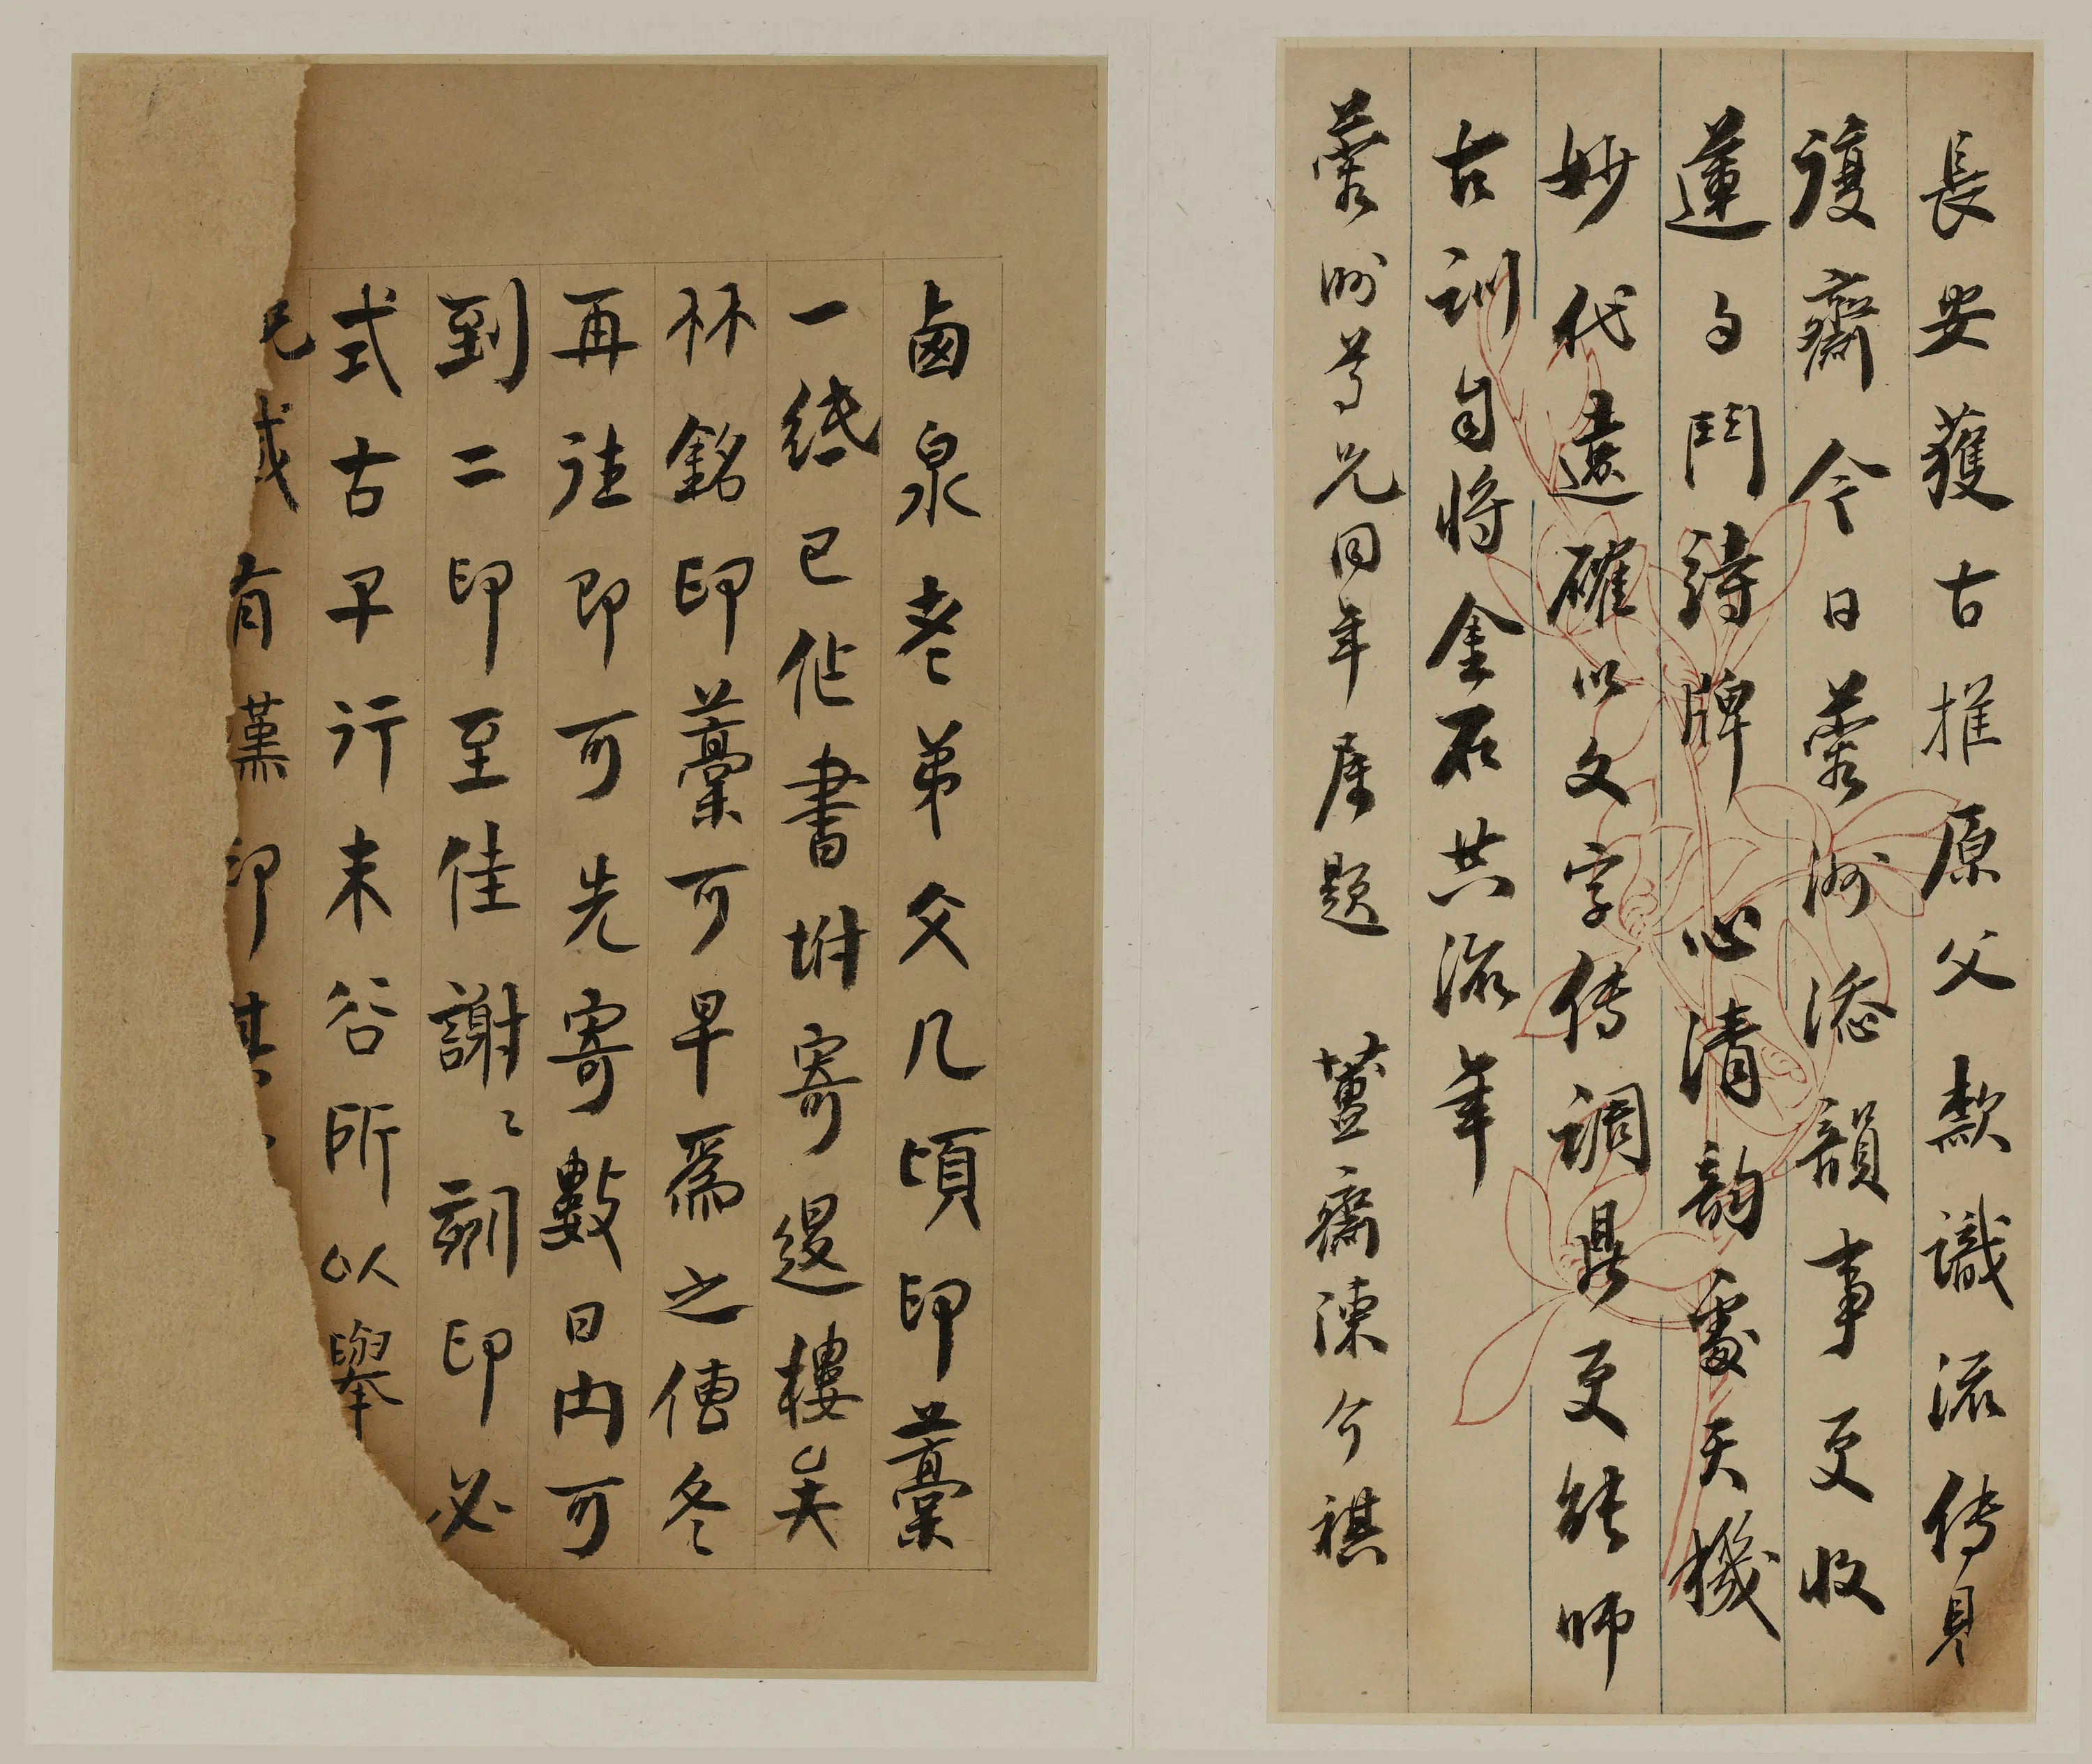 長安獲古推原父款識流傳見
䕶齋今日蓉洲添韻事更收
蓮勺鬥詩牌心清韵處天機
妙代遠確以文字傳調鼎更能師
古訓自將金石共流年
蓉洲尊兄同年属題 簠齋陳介祺
鹵泉老弟父几頃印藁
一紙已作書坿寄退樓美
林銘印藁可早爲之便冬
再往即可先寄數日内可
到二印至佳謝〻刻印必
式古早行未谷所以舉
兄或有漢印其